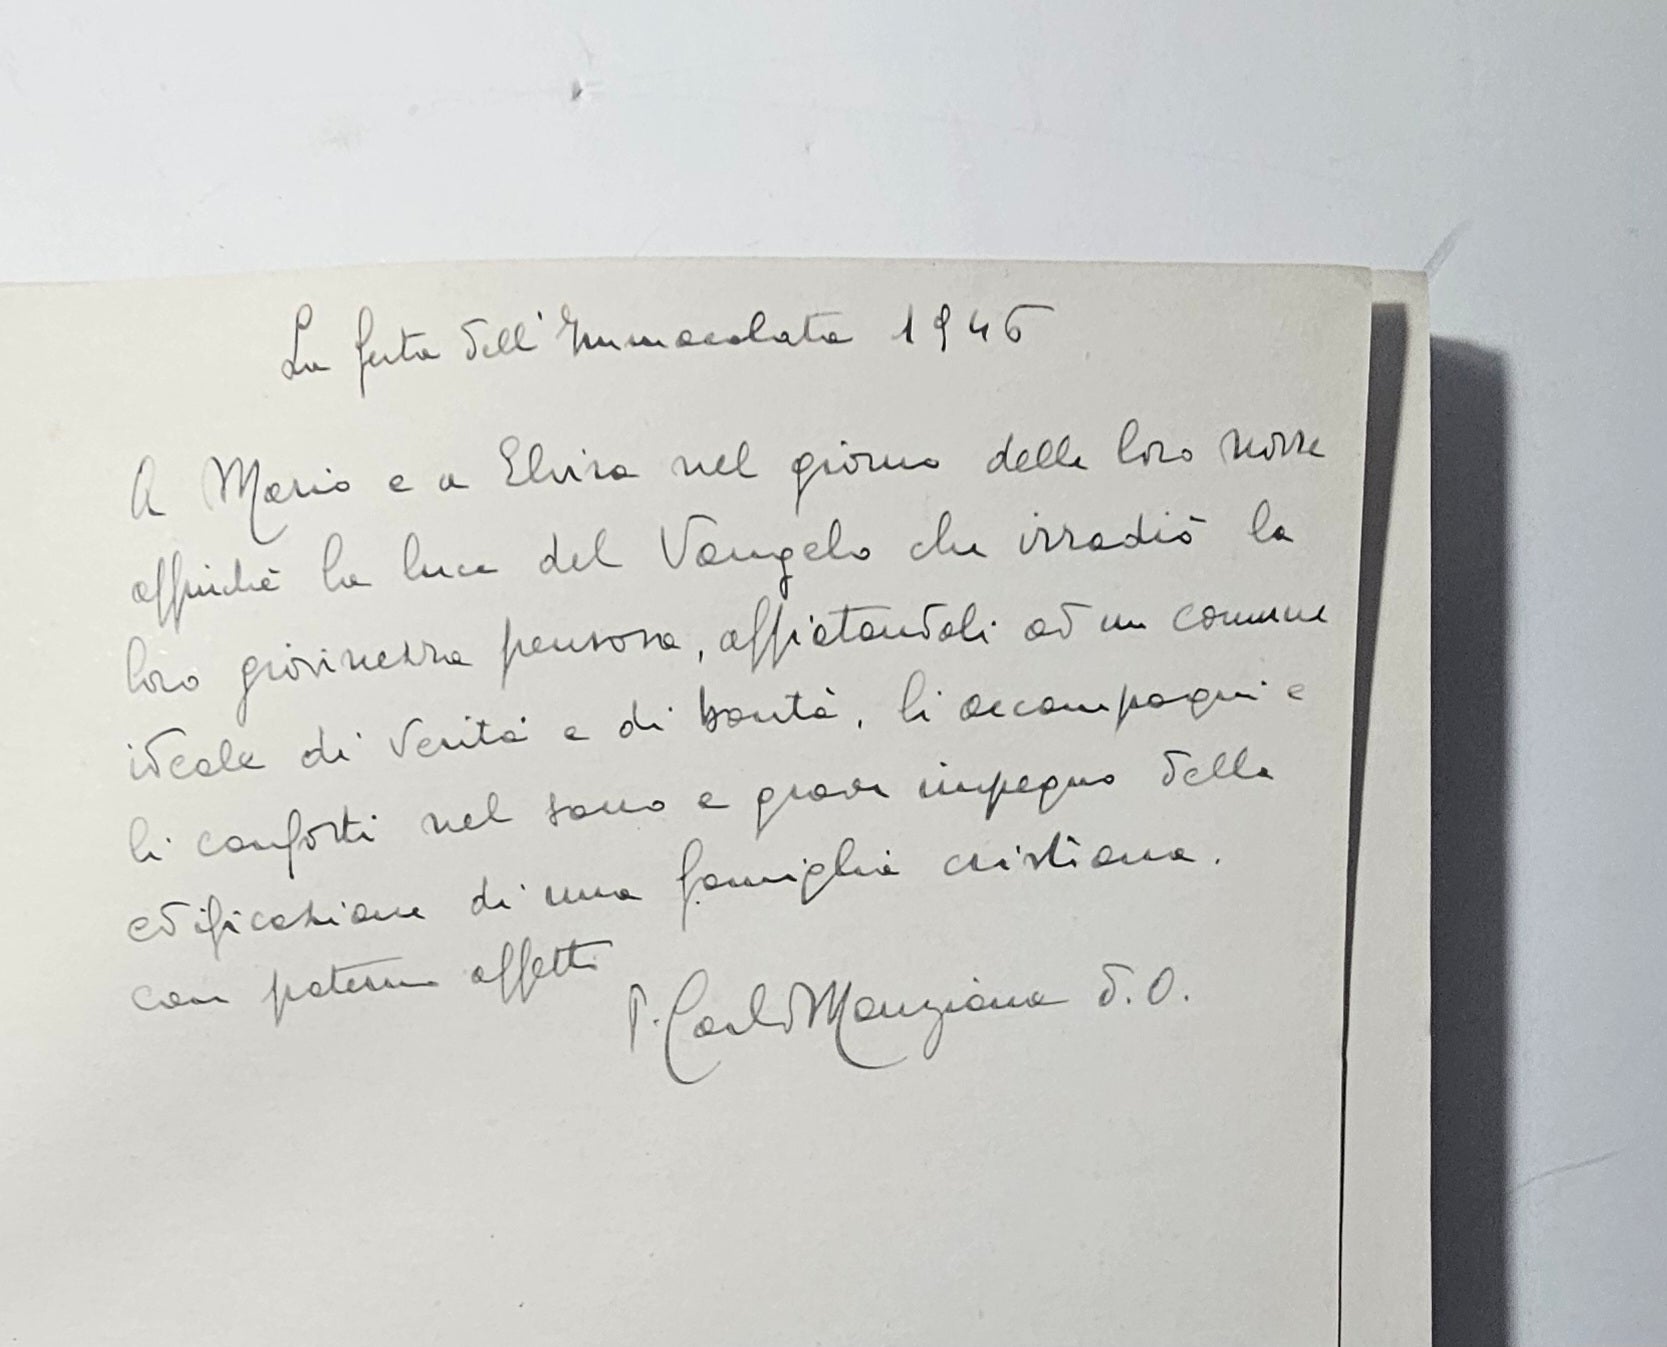 La festa dell'Immacolata 1946
A Mario e a Elvira nel giorno delle loro nozze
affinchè la luce del Vangelo che irradiò la
loro giovinezza pensosa, affiatandoli ad un comune
ideale di verità e di bontà, li accompagni e
li conforti nel sano e grave impegno della
edificazione di una famiglia cristiana.
con paterno affetto
P. Carlo Manziana d. O.